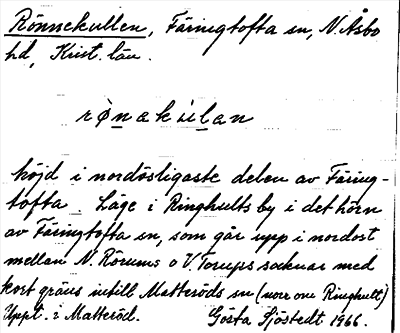 Rönnekullen, Färingtofta sn, N. Åsbo
hd, Krist. län.
rø̱nakɯḻan
höjd i nordösligaste delen av Färing-
tofta. Läge i Ringhults by i det hörn
av Färingtofta sn, som går upp i nordost
mellan N. Rörums o V. Torups socknar med
kort gräns intill Matteröds sn (norr om Ringhult)
Uppt. i Matteröd. Gösta Sjöstedt 1966.